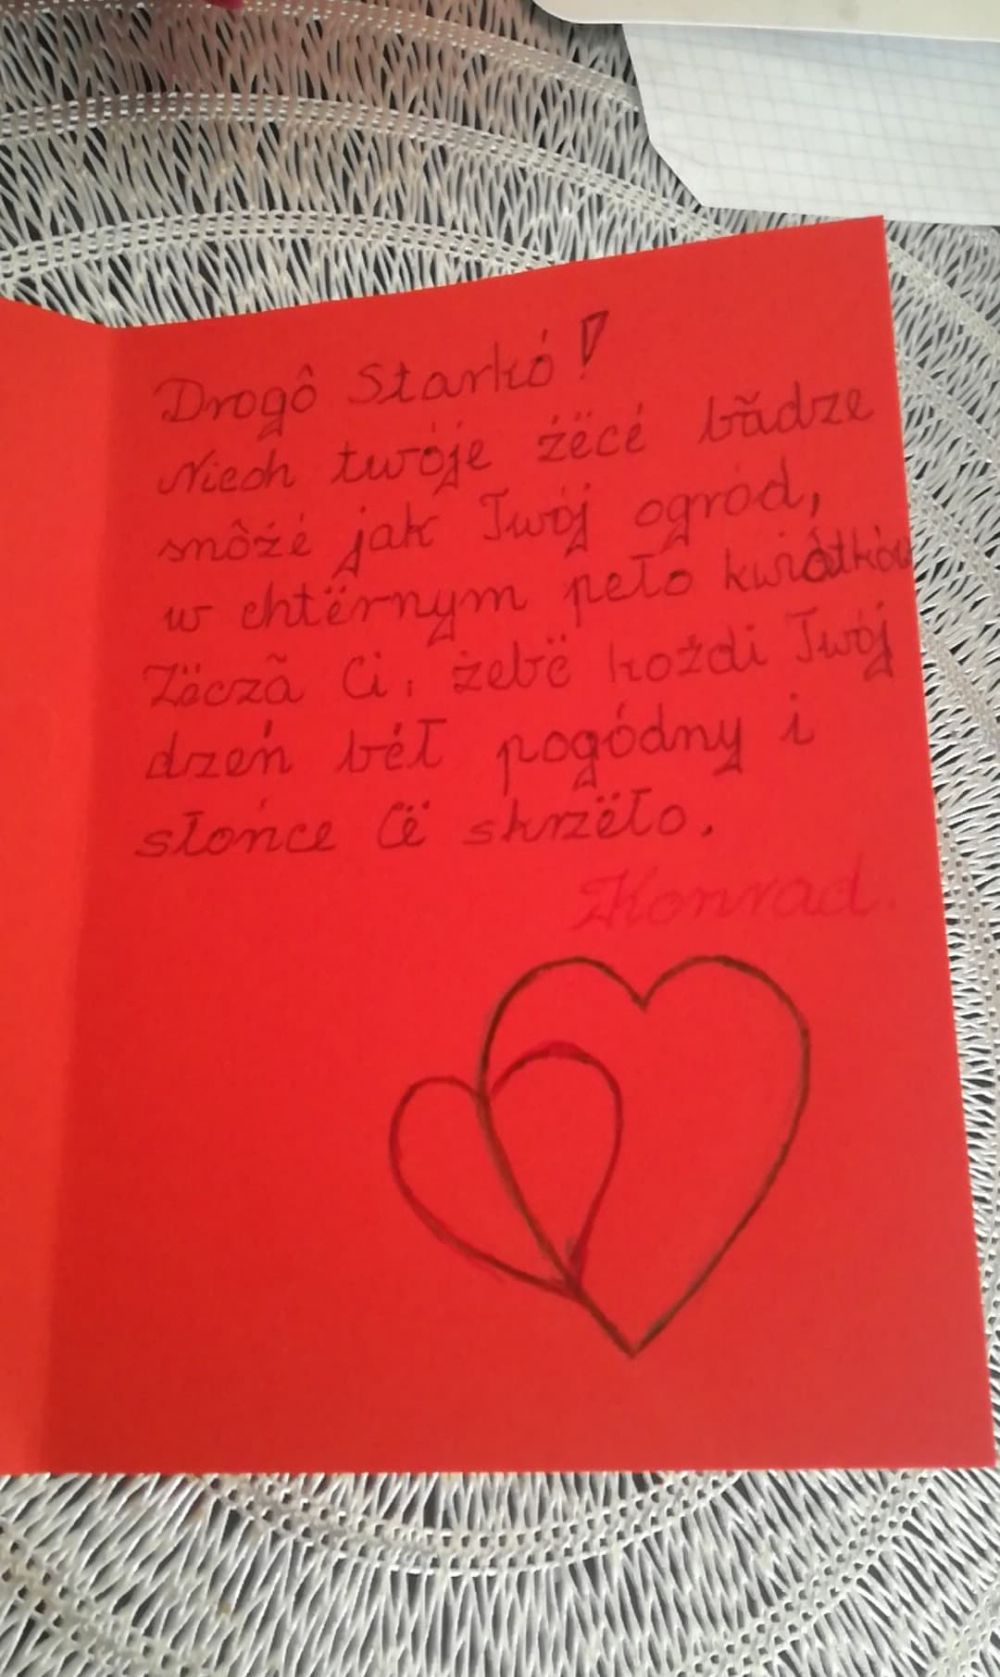 Drogô Starkó!
Niech twóje żëcé bãdze
snôżé jak Twój ogród,
w chtërnym peło kwiôtków
Zëczã Ci, żebë kożdi Twój
dzeń béł pogódny i
słońce Cë skrzëło.
Konrad.